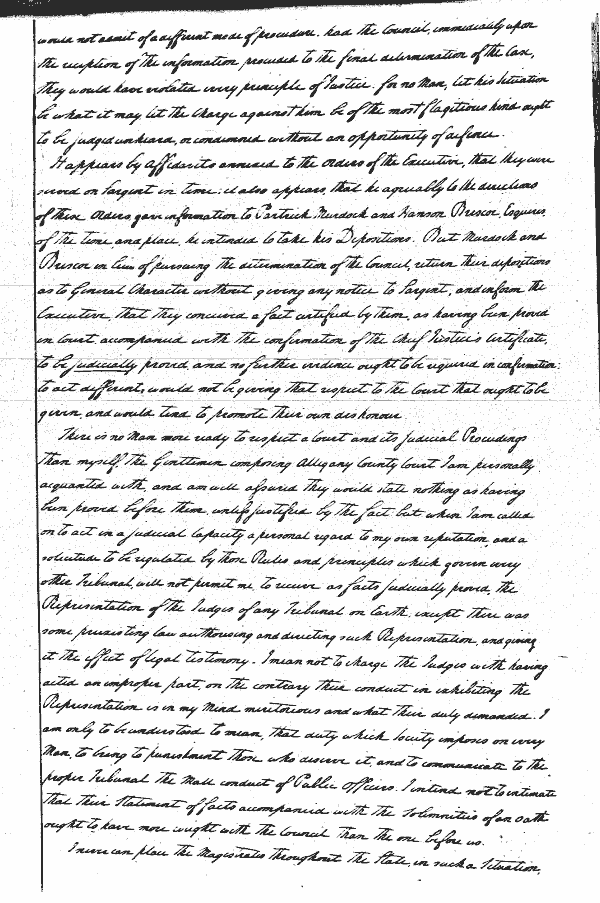 would not admit of a different mode of procedure. had the Council, immediately upon
the reception of the information proceeded to the final determination of the Case,
they would have violated every principle of Justice. for no Man, let his Situation
be what it may let the Charge against him be of the most flagitious kind ought
to be judged unheard, or condemned without an opportunity of defence.
It appears by affidavits annexed to the orders of the Executive, that they were
served on Sargent in time; it also appears, that he agreeably to the directions
of these Orders, gave information to Partrick Murdock and Hanson Briscoe, Esquires,
of the time and place, he intended to take his Depositions. But Murdock and
Briscoe in lieu of pursuing the determination of the Council, return their depositions
as to General Character without giving any notice to Sargent, and inform the
Executive, that they conceived a fact certified by them, as having been proved
in Court, accompanied with the confirmation of the Chief Justice's Certificate,
to be judicially proved, and no further evidence ought to be required in confirmation:
to act different, would not be giving that respect to the Court that ought to be
given, and would tend to promote their own dishonour.
There is no Man more ready to respect a Court and its Judicial Proceedings
than myself, the Gentlemen composing Allegany County Court I am personally
acquanted with, and am well assured they would state nothing as having
been proved before them, unless justified by the fact but when I am called
on to act in a judicial capacity a personal regard to my own reputation, and a
solicitude to be regulated by those Rules and principles which govern every
other Tribunal, will not permit me, to receive as facts Judicially proved, the
Representation of the Judges of any Tribunal on Earth, except there was
some preexisting law authorising and directing such Representation, and giving
it the effect of legal testimony. I mean not to charge the Judges with having
acted an improper part, on the contrary their conduct in exhibiting the
Representation is in my mind meritorious and what their duty demanded. I
am only to be understood to mean, that duty which Society imposes on every
Man, to bring to punishment those who deserve it, and to communicate to the
proper Tribunal the Mall conduct of Public Officers. I intend not to intimate
that their Statement of facts accompanied with the Solemnities of an oath
ought to have more weight with the Council than the one before us.
I never can place the Magistrates throughout the State, in such a Situation,